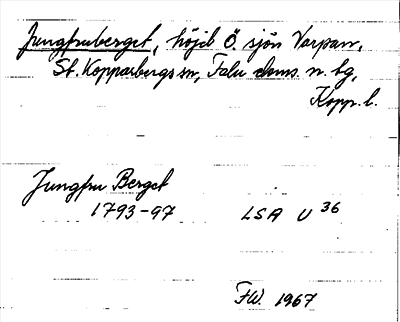 Jungfruberget, höjd Ö. sjön Varpan,
St. Kopparbergs sn, Falu doms. n. tg,
Kopp. l.
Jungfru Berget
1793-97 LSA U 36
FW. 1967